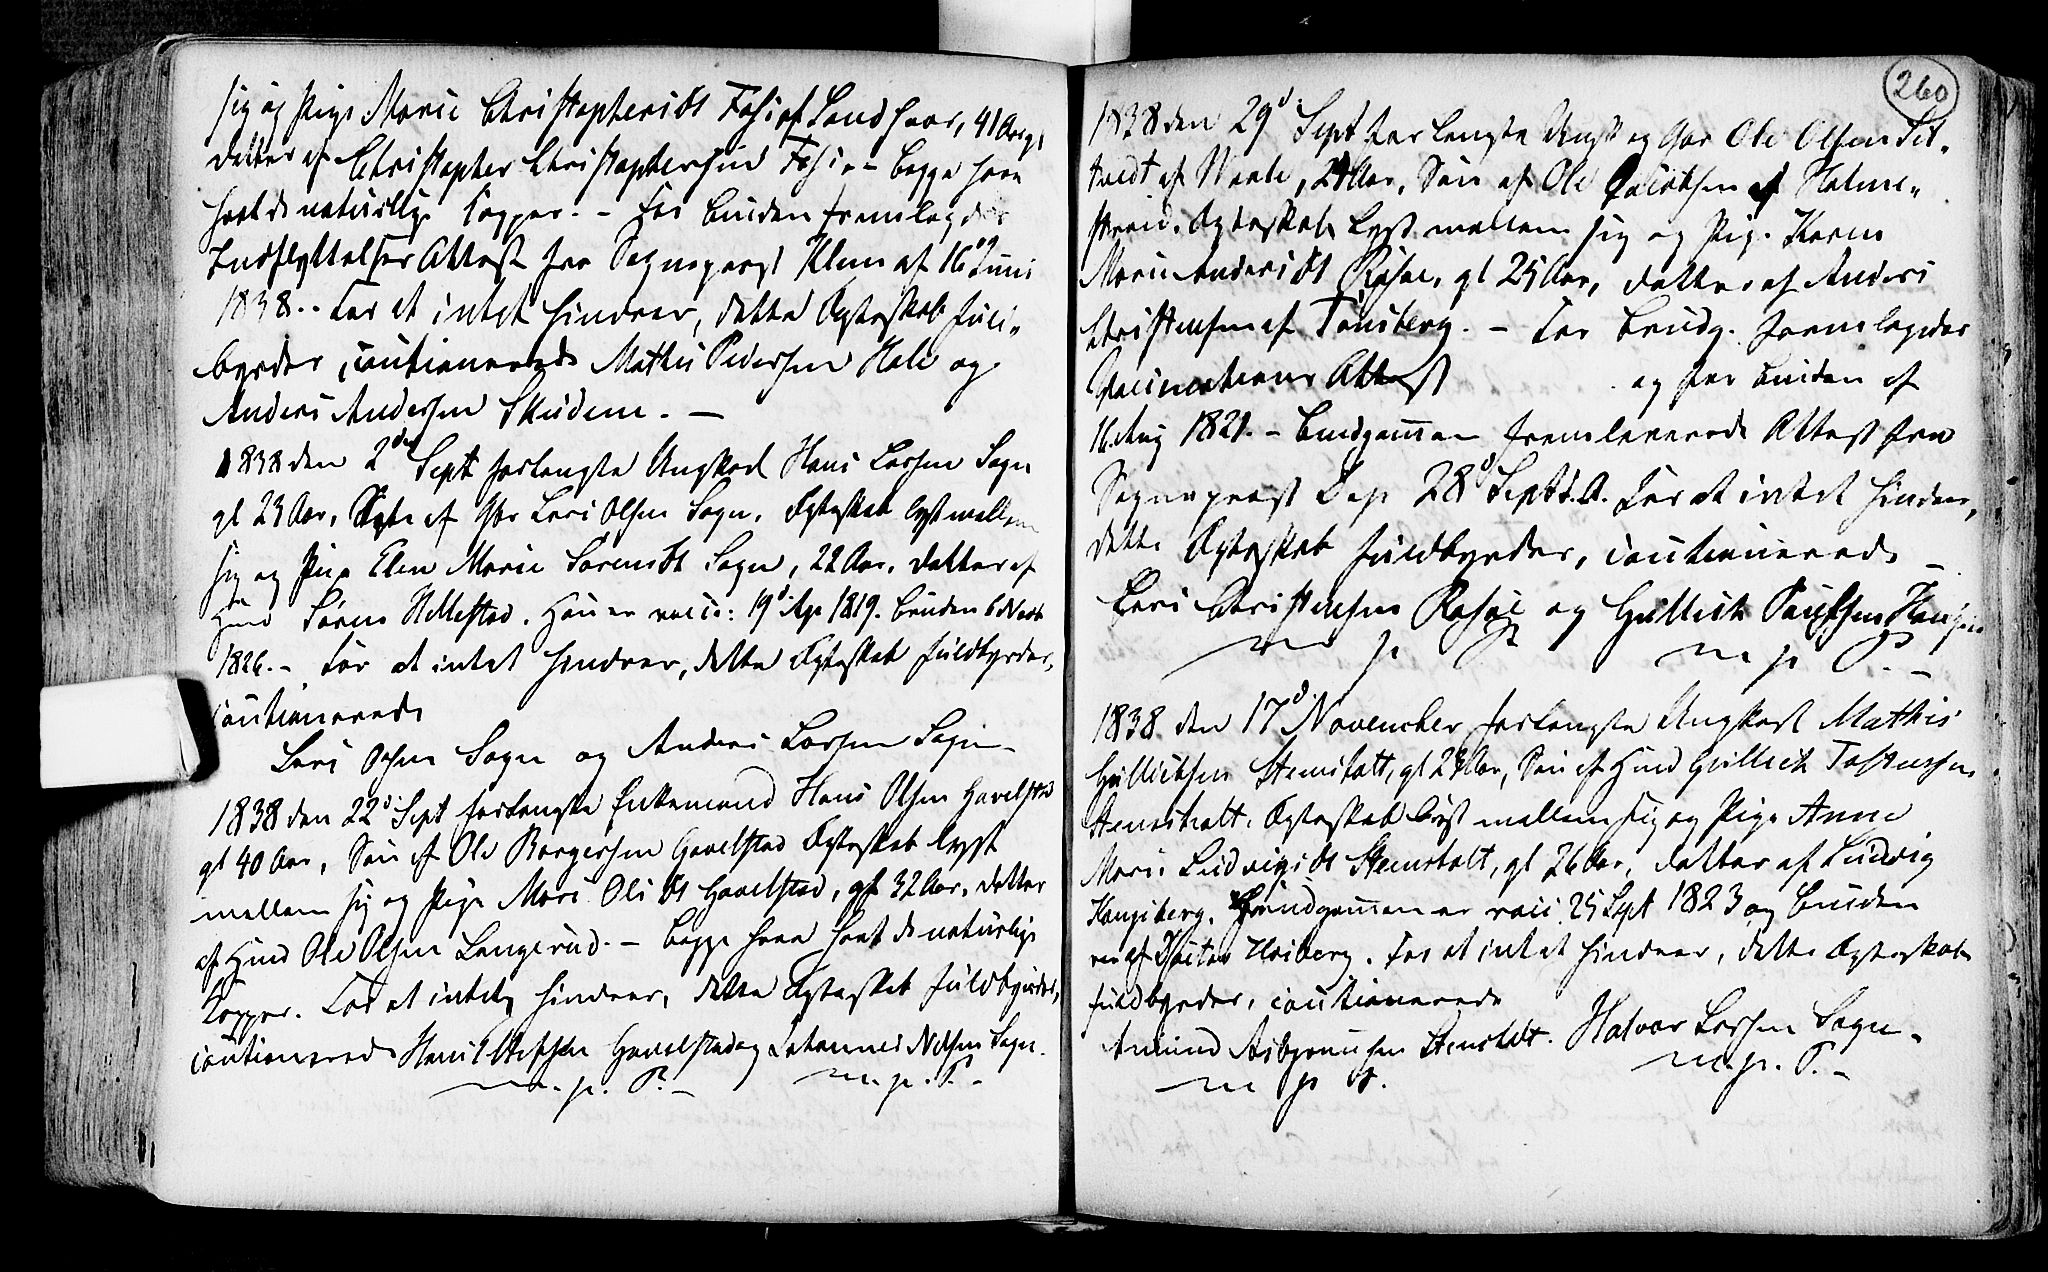 sig og Pige Marie Christophersdt Fossi af Landsoor, 41 Aar gl
datter af Christopher Christophersen Fossi. - begge have
havt de naturlige Kopper. - For Bruden fremlagdes
Indflyttelses Attest fra Sognepræst Klem af 16d Juni
1838. - For at intet hindrer, dette Ægteskab fuld-
byrdes, cautionerede Mathis Pedersen Hale og
Anders Andersen Skudem. -
1838 den 2den Sept forlangte Ungkarl Hans Larsen Sogn
gl 23 Aar, Søn af Gbr Lars Olsen Sogn, Ægteskab lyst mellem
sig og Pige Elen Marie Sørensdt Sogn, 22 Aar, datter af
Hmd Søren Hillestad. Han er vacc: 19d Apr 1819. Bruden 6 Novbr
1826. - For at intet hindrer, dette Ægteskab fuldbyrdes,
cautionerede
Lars Olsen Sogn og Anders Larsen Sogn -
1838 den 22d Sept forlangte Enkemand Hans Olsen Gavelstad
gl 40 Aar, Søn af Ole Borgersen Gavelstad Ægteskab lyst
mellem sig og Pige Mari Olsdt Gavelstad, gl 32 Aar, datter
af Hmd Ole Olsen Langerud. - begge have havt de naturlige
Kopper. For at intet hindrer, dette Ægteskab fuldbyrdes,
cautionerede Hans Gavelstad og Johannes Nilsen Sogn.
m. p. P. - m. p. P. -
260
1838 den 29d Sept forlangte Ungk og Gbr Ole Olsen Set-
tvedt af Vaale, 24 Aar, Søn af Ole Jacobsen af Holme-
strand, Ægteskab lyst mellem sig og Pige Karen
Marie Andersdt Rosae, gl 25 Aar, datter af Anders
Christensen af Tønsberg. - For Brudg. fremlagdes
Vaccinations Attest og for Bruden af
16 Aug 1821. - Brudgommen fremleverede Attest fra
Sognepræst 28d Sept d.A. For at intet hindrer,
dette Ægteskab fuldbyrdes, cautionerede -
Lars Christensen Rosae og Gullich Paulsen
m p P m p P. -
1838 den 17d November forlangte Ungkarl Mathis
Gullichsen Stenshalt, gl 23 Aar, Søn af Hmd Gullich Tostensen
Stenshalt, Ægteskab lyst mellem sig og Pige Anne
Marie Ludvigsdt Stenshalt, gl 26 Aar, datter af Ludvig
Kongsberg. Brudgommen er vacc 25 Sept 1823 og Bruden
vacc af Doctor Hoiberg. For at intet hindrer, dette Ægteskab
fuldbyrdes, cautionerede
Amund Asbjørnsen Stenshalt. Halvor Larsen Sogn -
m p P. m. p. P. -